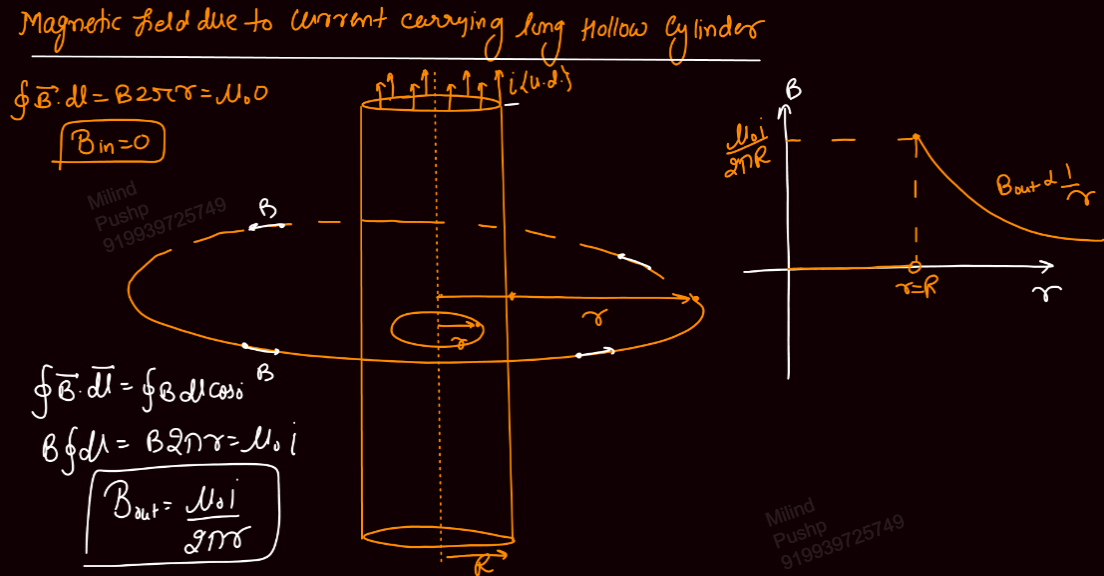 Magnetic field due to current carrying long Hollow Cylinder
∮B⃗.dl = B2πr = μ₀0
Bin=0
i{u.d.}
B
μ₀i/2πR
Bout ∝ 1/r
r=R
r
Milind
Pushp
919939725749
B
r
r
B
∮B⃗.dl⃗ = ∮B dl cos0
B∮dl = B2πr = μ₀i
Bout = μ₀i/2πr
R
Milind
Pushp
919939725749